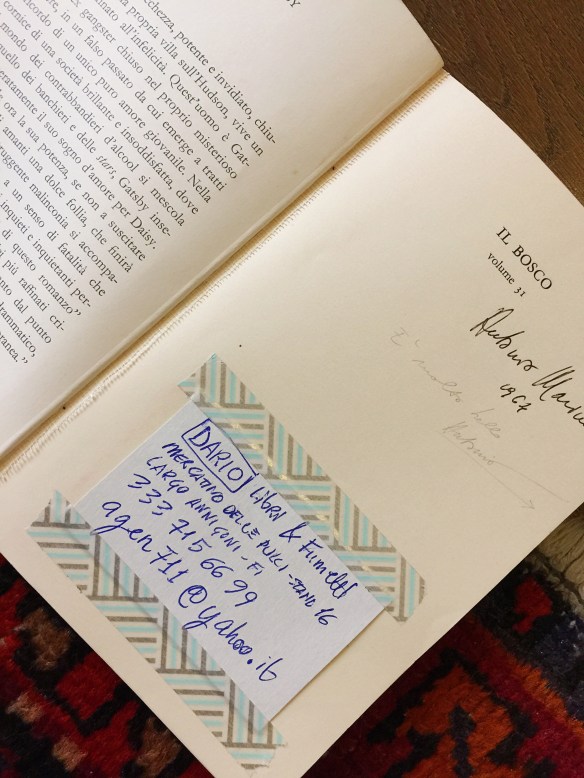 cchezza, potente e invidiato, chiu-
a propria villa sull'Hudson, vive un
nnato all'infelicità. Quest'uomo è Gat-
ex gangster chiuso nel proprio misterioso
re, in un falso passato da cui emerge a tratti
icordo di un unico puro amore giovanile. Nella
cornice di una società brillante e insoddisfatta, dove
mondo dei contrabbandieri d'alcool si mescola
quello dei banchieri e delle stars, Gatsby inse-
eratamente il suo sogno d'amore per Daisy.
ora la sua potenza, se non a suscitare
i amanti una dolce follia, che finirà
ruggente malinconia si accompa-
a un senso di fatalità che
inquieti e inquietanti per-
di questo romanzo"
più raffinati cri-
nto dal punto
drammatico,
oranea."
IL BOSCO
volume 31
1967
È molto bello
Antonio
DARIO LIBRI & FUMETTI
MERCATINO DELLE PULCI
16
LARGO ANNIGONI - FI
333 715 66 99
agen711@yahoo.it